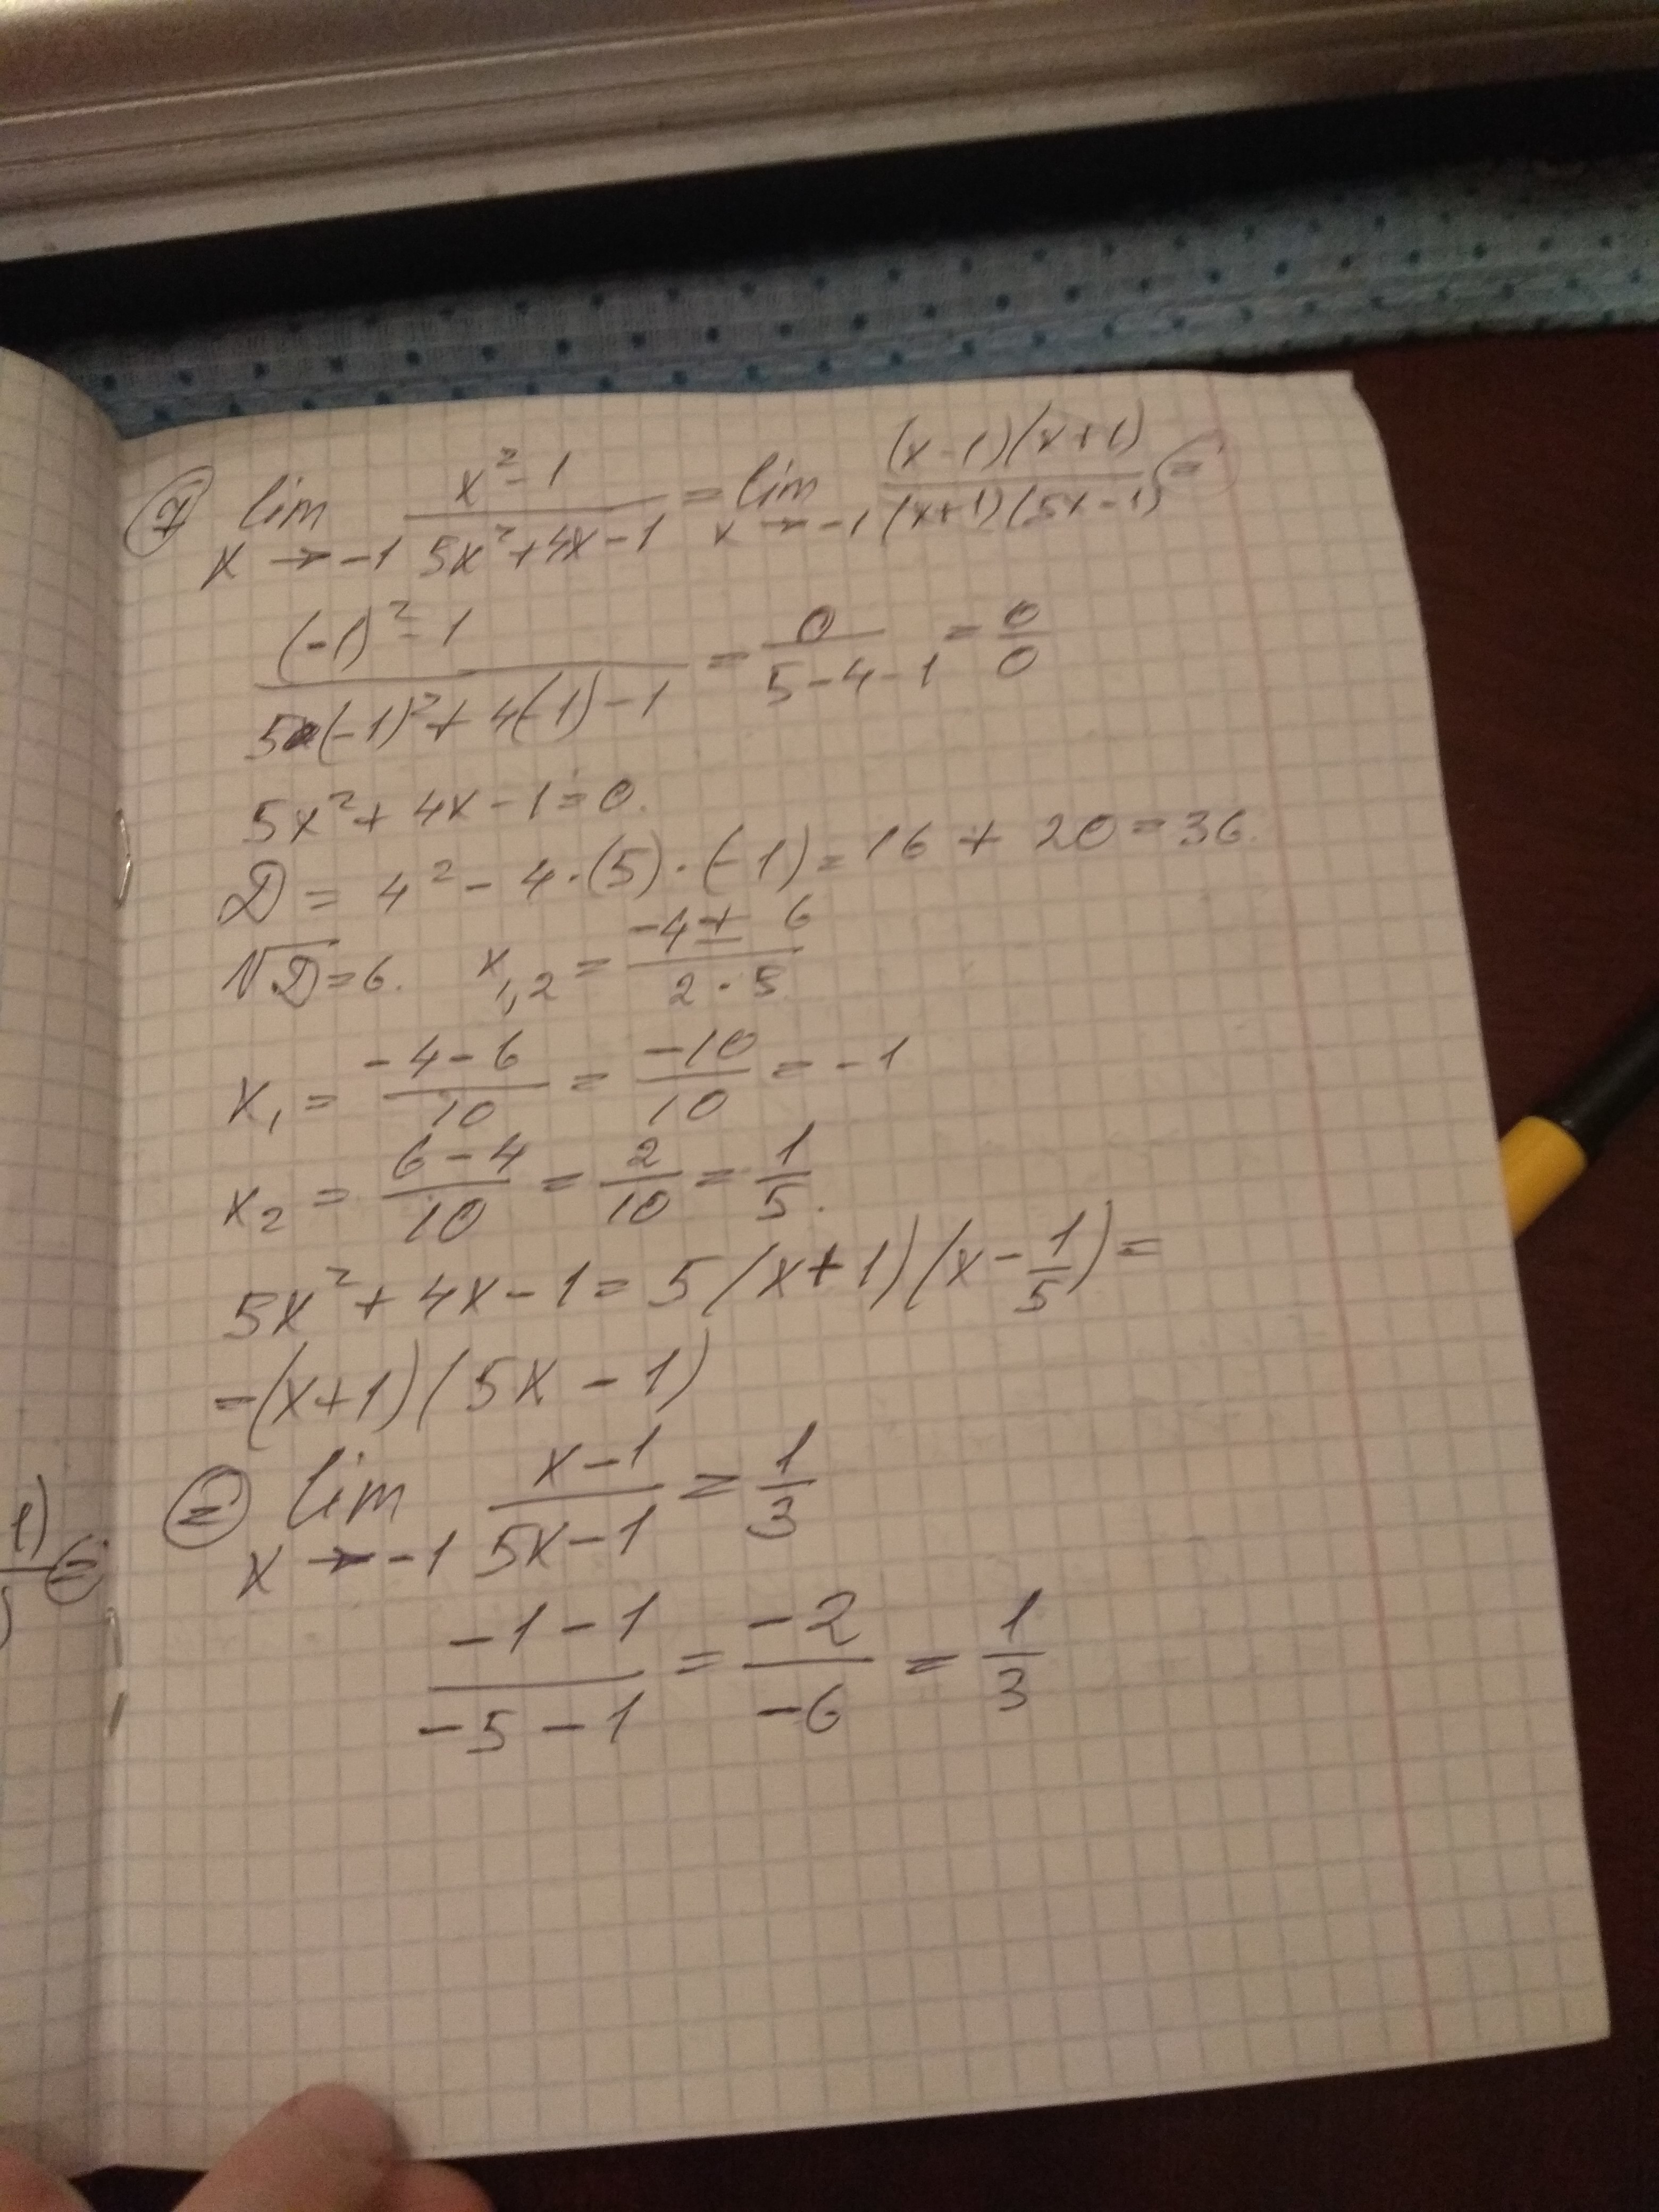 7) lim x→-1 (x²-1)/(5x²+4x-1) = lim x→-1 ((x-1)(x+1))/((x+1)(5x-1)) =
((-1)²-1)/(5(-1)²+4(-1)-1) = 0/(5-4-1) = 0/0
5x²+4x-1=0.
D = 4² - 4·(5)·(-1) = 16 + 20 = 36.
√D = 6. x₁,₂ = (-4±6)/(2·5)
x₁ = (-4-6)/10 = -10/10 = -1
x₂ = (6-4)/10 = 2/10 = 1/5.
5x²+4x-1 = 5(x+1)(x-1/5) =
=(x+1)(5x-1)
= lim x→-1 (x-1)/(5x-1) = 1/3
(-1-1)/(-5-1) = -2/-6 = 1/3